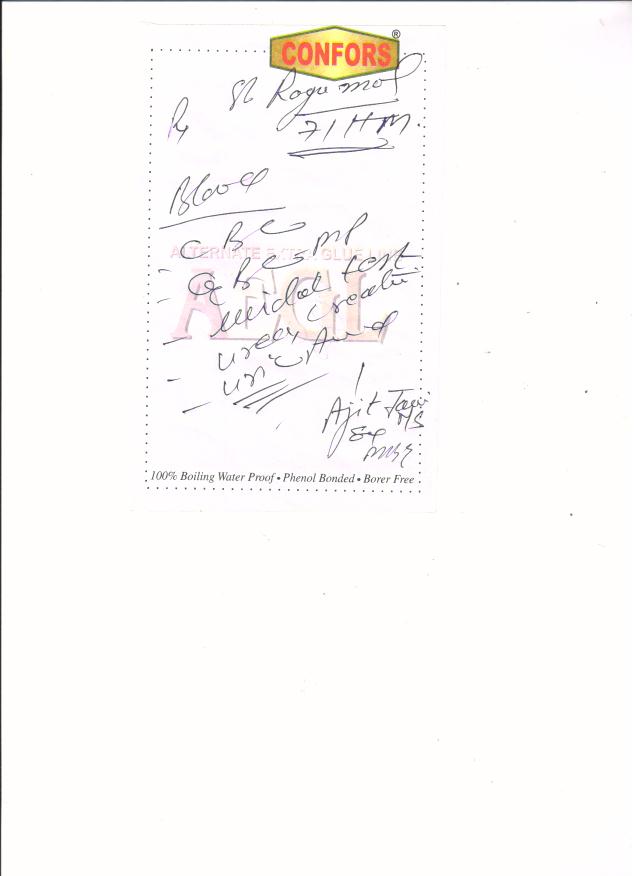 CONFORS ®
Rx Sh Roga mol
71 HM.
Blood
- CBC
- QBC MP
- widal test
- urea, creatin
- uric Acid
Ajit
ALTERNATE EXTRA GLUE LINE
AEGL
100% Boiling Water Proof • Phenol Bonded • Borer Free